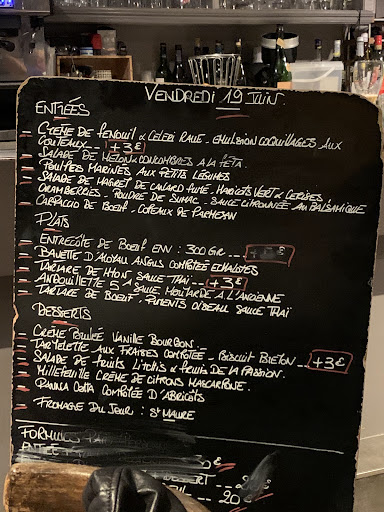 VENDREDI 19 JUIN.
ENTRÉES
CRÈME DE FENOUIL & CELERI RAVE, EMULSION COQUILLAGES AUX
COUTEAUX - - +3€
SALADE DE MELON & CONCOMBRES A LA FETA
POULPES MARINES AUX PETITS LÉGUMES
SALADE DE MAGRET DE CANARD FUMÉ, HARICOTS VERT & CERISES
CRAMBERRIES, POUDRE DE SUMAC, SAUCE CITRONNÉE AU BALSAMIQUE
CARPACCIO DE BOEUF, COPEAUX DE PARMESAN
PLATS
ENTRECÔTE DE BOEUF ENV : 300 GR
BAVETTE D'ALOYAU ANGUS COMPOTÉE ECHALOTES
TARTARE DE THON SAUCE THAÏ - - +3€
ANDOUILLETTE 5A SAUCE MOUTARDE A L'ANCIENNE
TARTARE DE BOEUF, PIMENTS OISEAU SAUCE THAÏ
DESSERTS
CRÈME BRULÉE VANILLE BOURBON
TARTELETTE AUX FRAISES COMPOTÉE - BISCUIT BRETON - - +3€
SALADE DE FRUITS LITCHIS & FRUITS DE LA PASSION.
MILLEFEUILLE CRÈME DE CITRONS MASCARPONE.
PANNA COTTA COMPOTÉE D'ABRICOTS
FROMAGE DU JOUR : ST MAURE
FORMULES
ENTRÉE
20€